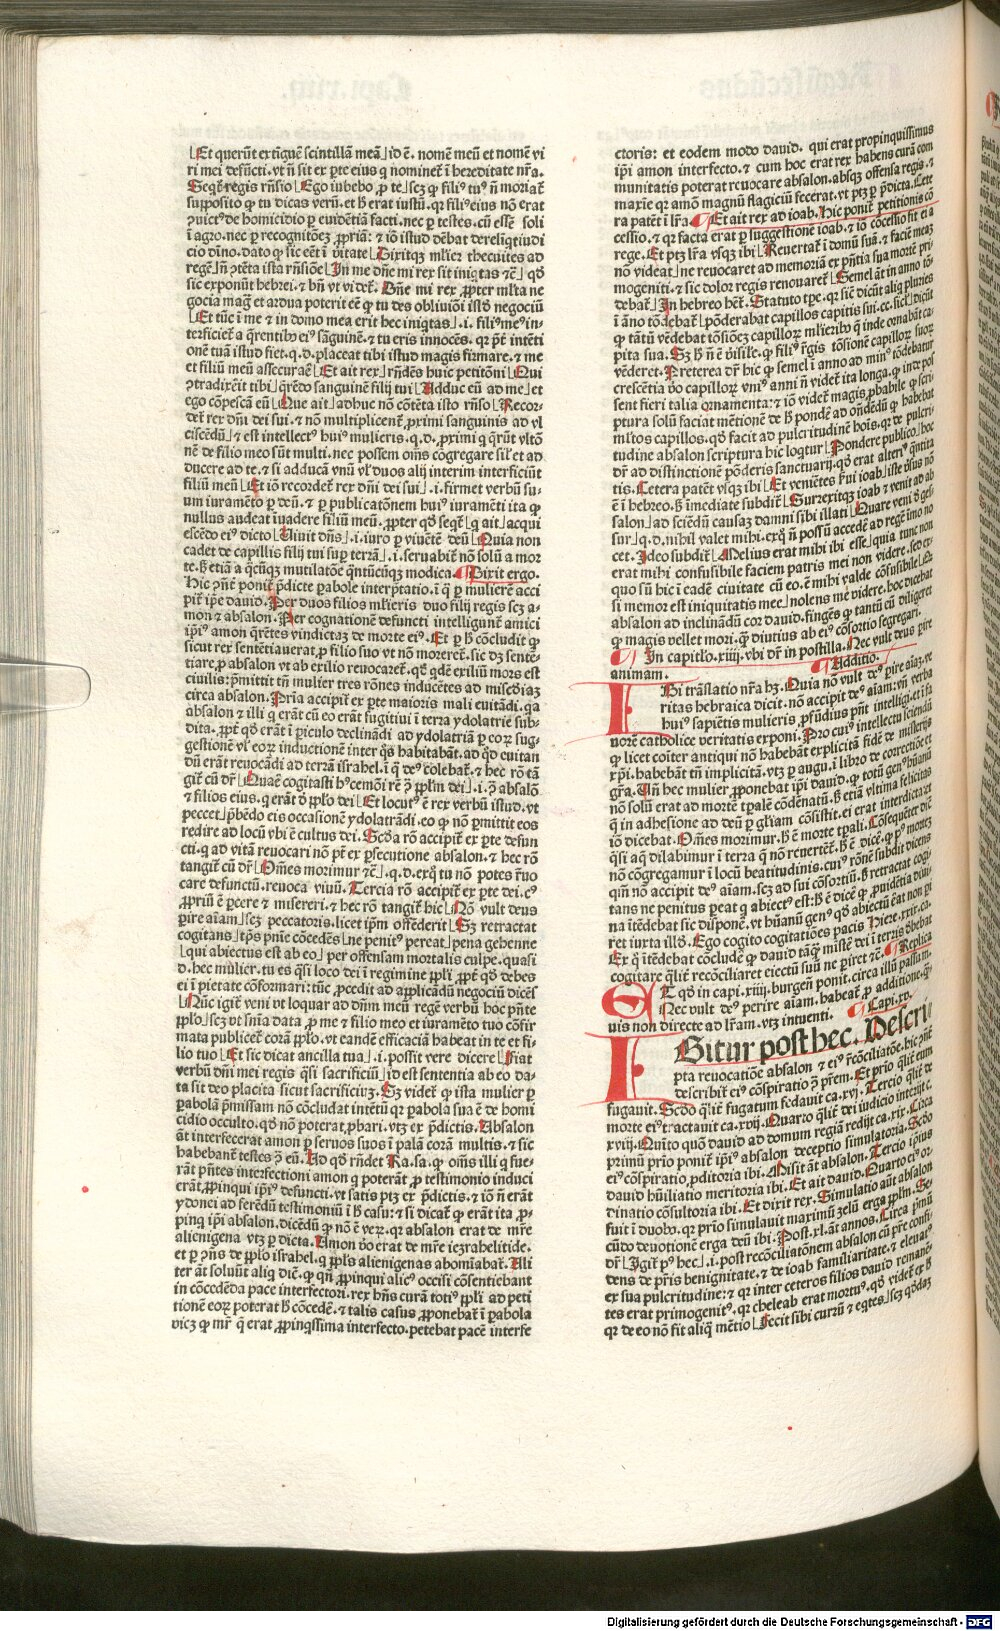 Et querũt extiguẽ scintillã meã id ẽ. nomẽ meũ et nomẽ vi
ri mei defũcti. vt ñ sit ex ꝑte eius q̇ nominet̃ ĩ hereditate nr̃a.
Seqt̃ regis rñsio Ego iubebo ꝓ te scz ꝙ filiꝰ tuꝰ ñ moriat̃
supposito ꝙ tu dicas verũ. et h̃ erat iustũ. qꝛ filiꝰ eius nõ erat
ꝯuictꝰ de homicidio ꝑ euidẽtiã facti. nec ꝑ testes. cũ essẽt soli
ĩ agro. nec ꝑ recognitõez ꝓpriã: ⁊ iõ istud dẽbat dereliqui iudi
cio diño. dato ꝙ sic eẽt ĩ vĩtate Dixitqz mlier thecuites ad
regẽ ñ ꝯtẽta ista rñsiõe In me dñe mi rex sit iniqtas ⁊c̃ qð
sic exponũt hebrei. ⁊ bñ vt videt̃. Dñe mi rex ꝓpter mlta ne
gocia magª et ardua poterit eẽ ꝙ tu des obliuiõi istð negociũ
Et tũc ĩ me ⁊ in domo mea erit hec iniqtas .i. filiꝰ meꝰ in⸗
terficiet̃ a q̃rentibꝰ eiꝰ sãguinẽ. ⁊ tu eris innocẽs. qꝛ pt̃ intẽti
onẽ tuã istud fiet. q.d. placeat tibi istud magis firmare. ⁊ me
et filiũ meũ assecurare Et ait rex rñdẽs huic petitõni Qui
ꝯtradixerit tibi q̃rẽdo sanguinẽ filij tui Adduc eũ ad me et
ego cõpescã eũ Que ait adhuc nõ cõtẽta isto rñso Recor⸗
det̃ rex dñi dei sui. ⁊ nõ multiplicent̃ ꝓximi sanguinis ad vl
ciscẽdũ ⁊ est intellectꝰ huiꝰ mulieris. q.d. ꝓximi q̇ q̃rũt vltõ
nẽ de filio meo sũt multi. nec possem oẽs cõgregare sil̃ et ad
ducere ad te. ⁊ si adducã vnũ vl̃ duos alij interim interficiũt
filiũ meũ Et iõ recordet̃ rex dñi dei sui .i. firmet verbũ su⸗
um iuramẽto ꝑ deũ. ⁊ ꝑ publicatõnem huiꝰ iuramẽti ita ꝙ
nullus audeat ĩuadere filiũ meũ. ꝓpter qð seqt̃ q̇ ait acqui
escẽdo eiꝰ dicto Viuit dñs .i. iuro ꝑ viuẽtẽ deũ Quia non
cadet de capillis filij tui suꝑ terrã .i. seruabit̃ nõ solũ a mor
te. h̃ etiã a q̃cũqz mutilatõe q̃ntũcũqz modica. Dixit ergo.
Hic ꝯñt ponit̃ p̃dicte ꝑabole interp̃tatio. ĩ q̃ ꝑ mulierẽ acci
pit̃ ip̃e dauid. Per duos filios mlieris duo filij regis scz a⸗
mon ⁊ absalon. Per cognationẽ defuncti intelligunt̃ amici
ip̃iꝰ amon q̃rẽtes vindictaz de morte eiꝰ. Et ꝑ h̃ cõcludit ꝙ
sicut rex sentẽtiauerat. ꝓ filio suo vt nõ moreret̃. sic dz sentẽ⸗
tiare. ꝓ absalon vt ab exilio reuocaret̃. qð qdẽ exiliũ mors est
ciuilis: p̃mittit tñ mulier tres rõnes inducẽtes ad miscðiaz
circa absalon. Pria accipit̃ ex ꝑte maioris mali euitãdi. qa
absalon ⁊ illi q̇ erãt cũ eo erãt fugitiui ĩ terra ydolatrie sub⸗
dita. ꝓpt̃ qð erãt ĩ ꝑiculo declinãdi ad ydolatriã ꝑ eoꝝ sug⸗
gestionẽ vl̃ eoꝝ inductionẽ inter qðs habitabãt. ad qð euitan
dũ erãt reuocãdi ad terrã israhel. ĩ q̃ deꝰ colebat̃. ⁊ hec rõ tã
git̃ cũ dr̃ Quaẽ cogitasti hꝰcemõi rẽ ꝯ̃ pplm dei .i. ꝯ̃ absalõ
⁊ filios eius. q̇ erãt d̃ pplo dei Et locutꝰ ẽ rex verbũ istud. vt
peccet p̃bẽdo eis occasionẽ ydolatrãdi. eo ꝙ nõ ꝑmittit eos
redire ad locũ vbi ẽ cultus dei. Scða rõ accipit̃ ex ꝑte defun
cti. q̇ ad vitã reuocari nõ pt̃ ex ꝑsecutione absalon. ⁊ hec rõ
tangit̃ cũ dr̃ Oẽs morimur ⁊c̃ .q.d. exq̇ tu nõ potes r̃uo
care defunctũ. reuoca viuũ. Tercia rõ accipit̃ ex ꝑte dei. cꝰ
ꝓpriũ ẽ ꝑcere ⁊ misereri. ⁊ hec rõ tangit̃ hic Nõ vult deus
ꝑire aĩam scz peccatoris. licet ip̃m offẽderit Sz retractat
cogitans tp̃s pñie cõcedẽs ne penitꝰ pereat pena gehenne
qui abiectus est ab eo per offensam mortalis culpe. quasi
d. hec mulier. tu es q̃si loco dei ĩ regimine ppli ꝓpt̃ qð debes
ei ĩ pietate cõformari: tũc ꝓcedit ad applicãdũ negociũ dicẽs
Nũc igit̃ veni vt loquar ad dñm meũ regẽ verbũ hoc pñte
pplo scz vt snĩa data ꝓ me ⁊ filio meo et iuramẽto tuo cõfir
mata publicet̃ corã pplo. vt eandẽ efficaciã habeat in te et fi⸗
lio tuo Et sic dicat ancilla tua .i. possit vere dicere Fiat
verbũ dñi mei regis q̃si sacrificiũ id est sententia ab eo da⸗
ta sit deo placita sicut sacrificiuz. Sz videt̃ ꝙ ista mulier ꝑ
ꝑabolã p̃missam nõ cõcludat intẽtũ qꝛ ꝑabola sua ẽ de homi
cidio occulto. qð nõ poterat ꝓbari. vtz ex p̃dictis. Absalon
ãt interfecerat amon ꝑ seruos suos ĩ palã corã multis. ⁊ sic
habebant̃ testes ꝯ̃ eũ. Ad qð rñdet Ra. sa. ꝙ oẽs illi q̇ fue⸗
rãt pñtes interfectioni amon q̇ poterãt ꝓ testimonio induci
erãt ꝓpinqui ip̃iꝰ defuncti. vt satis ptz ex p̃dictis. ⁊ iõ ñ erãt
ydonei ad ferẽdũ testimoniũ ĩ h̃ casu: ⁊ si dicat̃ ꝙ erãt ita ꝓ⸗
pinq̇ ip̃i absalon. dicẽdũ ꝙ nõ ẽ verũ. qꝛ absalon erat de mr̃e
alienigena vtz ꝑ dicta. Amon ṽo erat de mr̃e iezrahelitide.
et ꝑ ꝯñs de pplo israhel. q̇ ppls alienigenas abomĩabat̃. Ali
ter ãt soluũt aliq̇ dicẽ. ꝙ qñ ꝓpinqui alicꝰ occisi cõsentiebant
in cõcedẽda pace interfectori. rex bñs curã totiꝰ ppli ad peti
tionẽ eoꝝ poterat h̃ cõcedẽ. ⁊ talis casus ꝓponebat̃ ĩ ꝑabola
vicz ꝙ mr̃ q̃ erat ꝓpinqssima interfecto. petebat pacẽ interfe
ctoris: et eodem modo dauid. qui erat propinquissimus
ip̃i amon interfecto. ⁊ cum hoc erat rex habens curã com
munitatis poterat reuocare absalon. absqz offensa regis. ⁊
maxĩe qꝛ amõ magnũ flagiciũ fecerat. vt ptz ꝑ p̃dicta. Cete
ra patẽt ĩ lr̃a. Et ait rex ad ioab. Hic ponit̃ petitionis cõ
cessio. ⁊ qꝛ facta erat ꝑ suggestionẽ ioab. ⁊ iõ cõcessio fit ei a
rege. Et ptz lr̃a vsqz ibi Reuertat̃ ĩ domũ suã. ⁊ faciẽ meaz
nõ videat ne reuocaret ad memoriã ex pñtia sua mortẽ pri
mogeniti: ⁊ sic dolor regis renouaret̃ Semel ãt in anno tõ⸗
debat̃ In hebreo het̃. Statuto tꝑe. qꝛ sic dicũt aliq̇ pluries
ĩ ãno tõdebat̃ põderabat capillos capitis sui .cc. sicl̃ dicũt
ꝙ tãtũ vẽdebat tõsiõez capilloꝝ mlieribꝰ q̇ inde ornabãt ca⸗
pita sua. Sz h̃ ñ ẽ v̇isile. ꝙ filiꝰ r̃gis tõsionẽ capilloꝝ suoꝝ
vẽderet. Preterea dr̃ hic ꝙ semel ĩ anno ad minꝰ tõdebatur
crescẽtia ṽo capilloꝝ vniꝰ anni ñ videt̃ ita longa. ꝙ inde pos
sent fieri talia ornamenta: ⁊ iõ videt̃ magis ꝓbabile ꝙ scri
ptura solũ faciat mẽtionẽ de h̃ pondẽ ad oñdẽdũ ꝙ habebat
mltos capillos. qð facit ad pulcritudinẽ hois. qꝛ de pulcri⸗
tudine absalon scriptura hic loqtur Pondere publico hoc
dr̃ ad distinctionẽ põderis sanctuarij. qð erat alteriꝰ q̃ntita
tis. Cetera patẽt vsqz ibi Et veniẽtes s̃ui ioab iste ṽsus nõ
ẽ ĩ hebreo. h̃ ĩmediate subdit̃ Surrexitqz ioab ⁊ venit ad ab
salon ad sciẽdũ causaz damni sibi illati Quare veni d̃ ges⸗
sur .q.d. nihil valet mihi. exq̇ ñ possũ accedẽ ad regẽ imo no
cet. Ideo subdit̃ Melius erat mihi ibi esse quia tunc non
erat mihi confusibile faciem patris mei non videre. sed ex
quo sũ hic ĩ eadẽ ciuitate cũ eo. ẽ mihi valde cõfusibile Q
si memor est iniquitatis mee nolens me videre. hoc dicebat
absalon ad inclinãdũ cor dauid. finges ꝙ tantũ cũ diligeret
ꝙ magis vellet mori. ꝙ diutius ab eiꝰ cõsortio segregari.
In capitl̃o. xiiij. vbi dr̃ in postilla. Nec vult deus ꝑire
animam. Additio.
IBi trãslatio nr̃a hz. Quia nõ vult deꝰ ꝑire aĩaz. ve
ritas hebraica dicit. nõ accipit deꝰ aĩam: vñ verba
huiꝰ sapiẽtis mulieris. ꝓfũdius pñt intelligi. et ĩ fa
uorẽ catholice veritatis exponi. Pro cuiꝰ intellectu sciendũ
ꝙ licet cõiter antiqui nõ habebãt explicitã fidẽ de misterijs
xp̃i. habebãt tñ implicitã. vtz ꝑ augu. ĩ libro de correctiõe et
gr̃a. Vñ hec mulier ꝓponebat ip̃i dauid. ꝙ totũ genꝰ huãnũ
nõ solũ erat ad mortẽ tꝑalẽ cõdẽnatũ. h̃ etiã vltima felicitas
q̃ in adhesione ad deũ ꝑ gl̃iam cõsistit. ei erat interdicta et
iõ dicebat. Oẽs morimur. h̃ ẽ morte tꝑali. Cõsequẽter dic̃
q̃si aq̃ dilabimur ĩ terra q̃ nõ reuertẽt̃. h̃ ẽ dicẽ. ꝙ pꝰ mortẽ
nõ cõgregamur ĩ locũ beatitudinis. cuiꝰ rõnẽ subdit dicens
qm̃ nõ accipit deꝰ aĩam. scz ad sui cõsortiũ. h̃ retractat cogi
tans ne penitus ꝑeat q̇ abiectꝰ est: h̃ ẽ dicẽ ꝙ ꝓuidẽtia diui
na itẽdebat sic disponẽ. vt hũanũ genꝰ qð abiectũ eat non pi
ret iuxta illð. Ego cogito cogitatiões pacis Hiere. xxix. ca.
Ex q̇ itẽdebat cõcludẽ ꝙ dauid tãqz mistẽ dei ĩ terris d̃bebat
cogitare q̃lit̃ recõciliaret eiectũ suũ ne ꝑiret ⁊c̃. Replica
ET qð in capi. xiiij. burgeñ. ponit. circa illũ passum.
Nec vult deꝰ perire aĩam. habeat̃ ꝓ additione. q̃⸗
uis non directe ad lr̃am. vtz intuenti. Capi. xv.
IGitur post hec. Descri
pta reuocatiõe absalon ⁊ eiꝰ r̃cõciliatõe. hic ꝯñt
describit̃ eiꝰ cõspiratio ꝯ̃ pr̃em. Et prio q̃lit̃ eum
fugauit. Scðo q̃lit̃ fugatum fedauit ca. xvj. Tercio q̃lit̃ de
morte eiꝰ tractauit ca. xvij. Quarto q̃lit̃ dei iudicio interijt c.
xviij. Quĩto quõ dauid ad domum regiã redijt ca. xix. Circa
primũ prio ponit̃ ip̃iꝰ absalon deceptio simulatoria. Scðo
eiꝰ cõspiratio ꝓditoria ibi. Misit ãt absalon. Tercio ip̃ius
dauid hũiliatio meritoria ibi. Et ait dauid. Quarto eiꝰ or⸗
dinatio cõsultoria ibi. Et dixit rex. Simulatio aũt absalon
fuit ĩ duobꝰ. qꝛ prio simulauit maximũ zelũ erga pplm. Se⸗
cũdo deuotionẽ erga deũ ibi. Post. xl. ãt annos. Circa p̃mũ
dr̃ Igit̃ pꝰ hec .i. post recõciliatõnem absalon cũ pr̃e confi⸗
dens de pr̃is benignitate. ⁊ de ioab familiaritate. ⁊ eleuatꝰ
ex sua pulcritudine: ⁊ qꝛ inter ceteros filios dauid remanẽ⸗
tes erat primogenitꝰ. qꝛ cheleab erat mortuꝰ. qð videt̃ ex h̃
qꝛ de eo nõ fit aliq̃ mẽtio Fecit sibi currũ ⁊ eqtes scz qðdaz
Digitalisierung gefördert durch die Deutsche Forschungsgemeinschaft - DFG